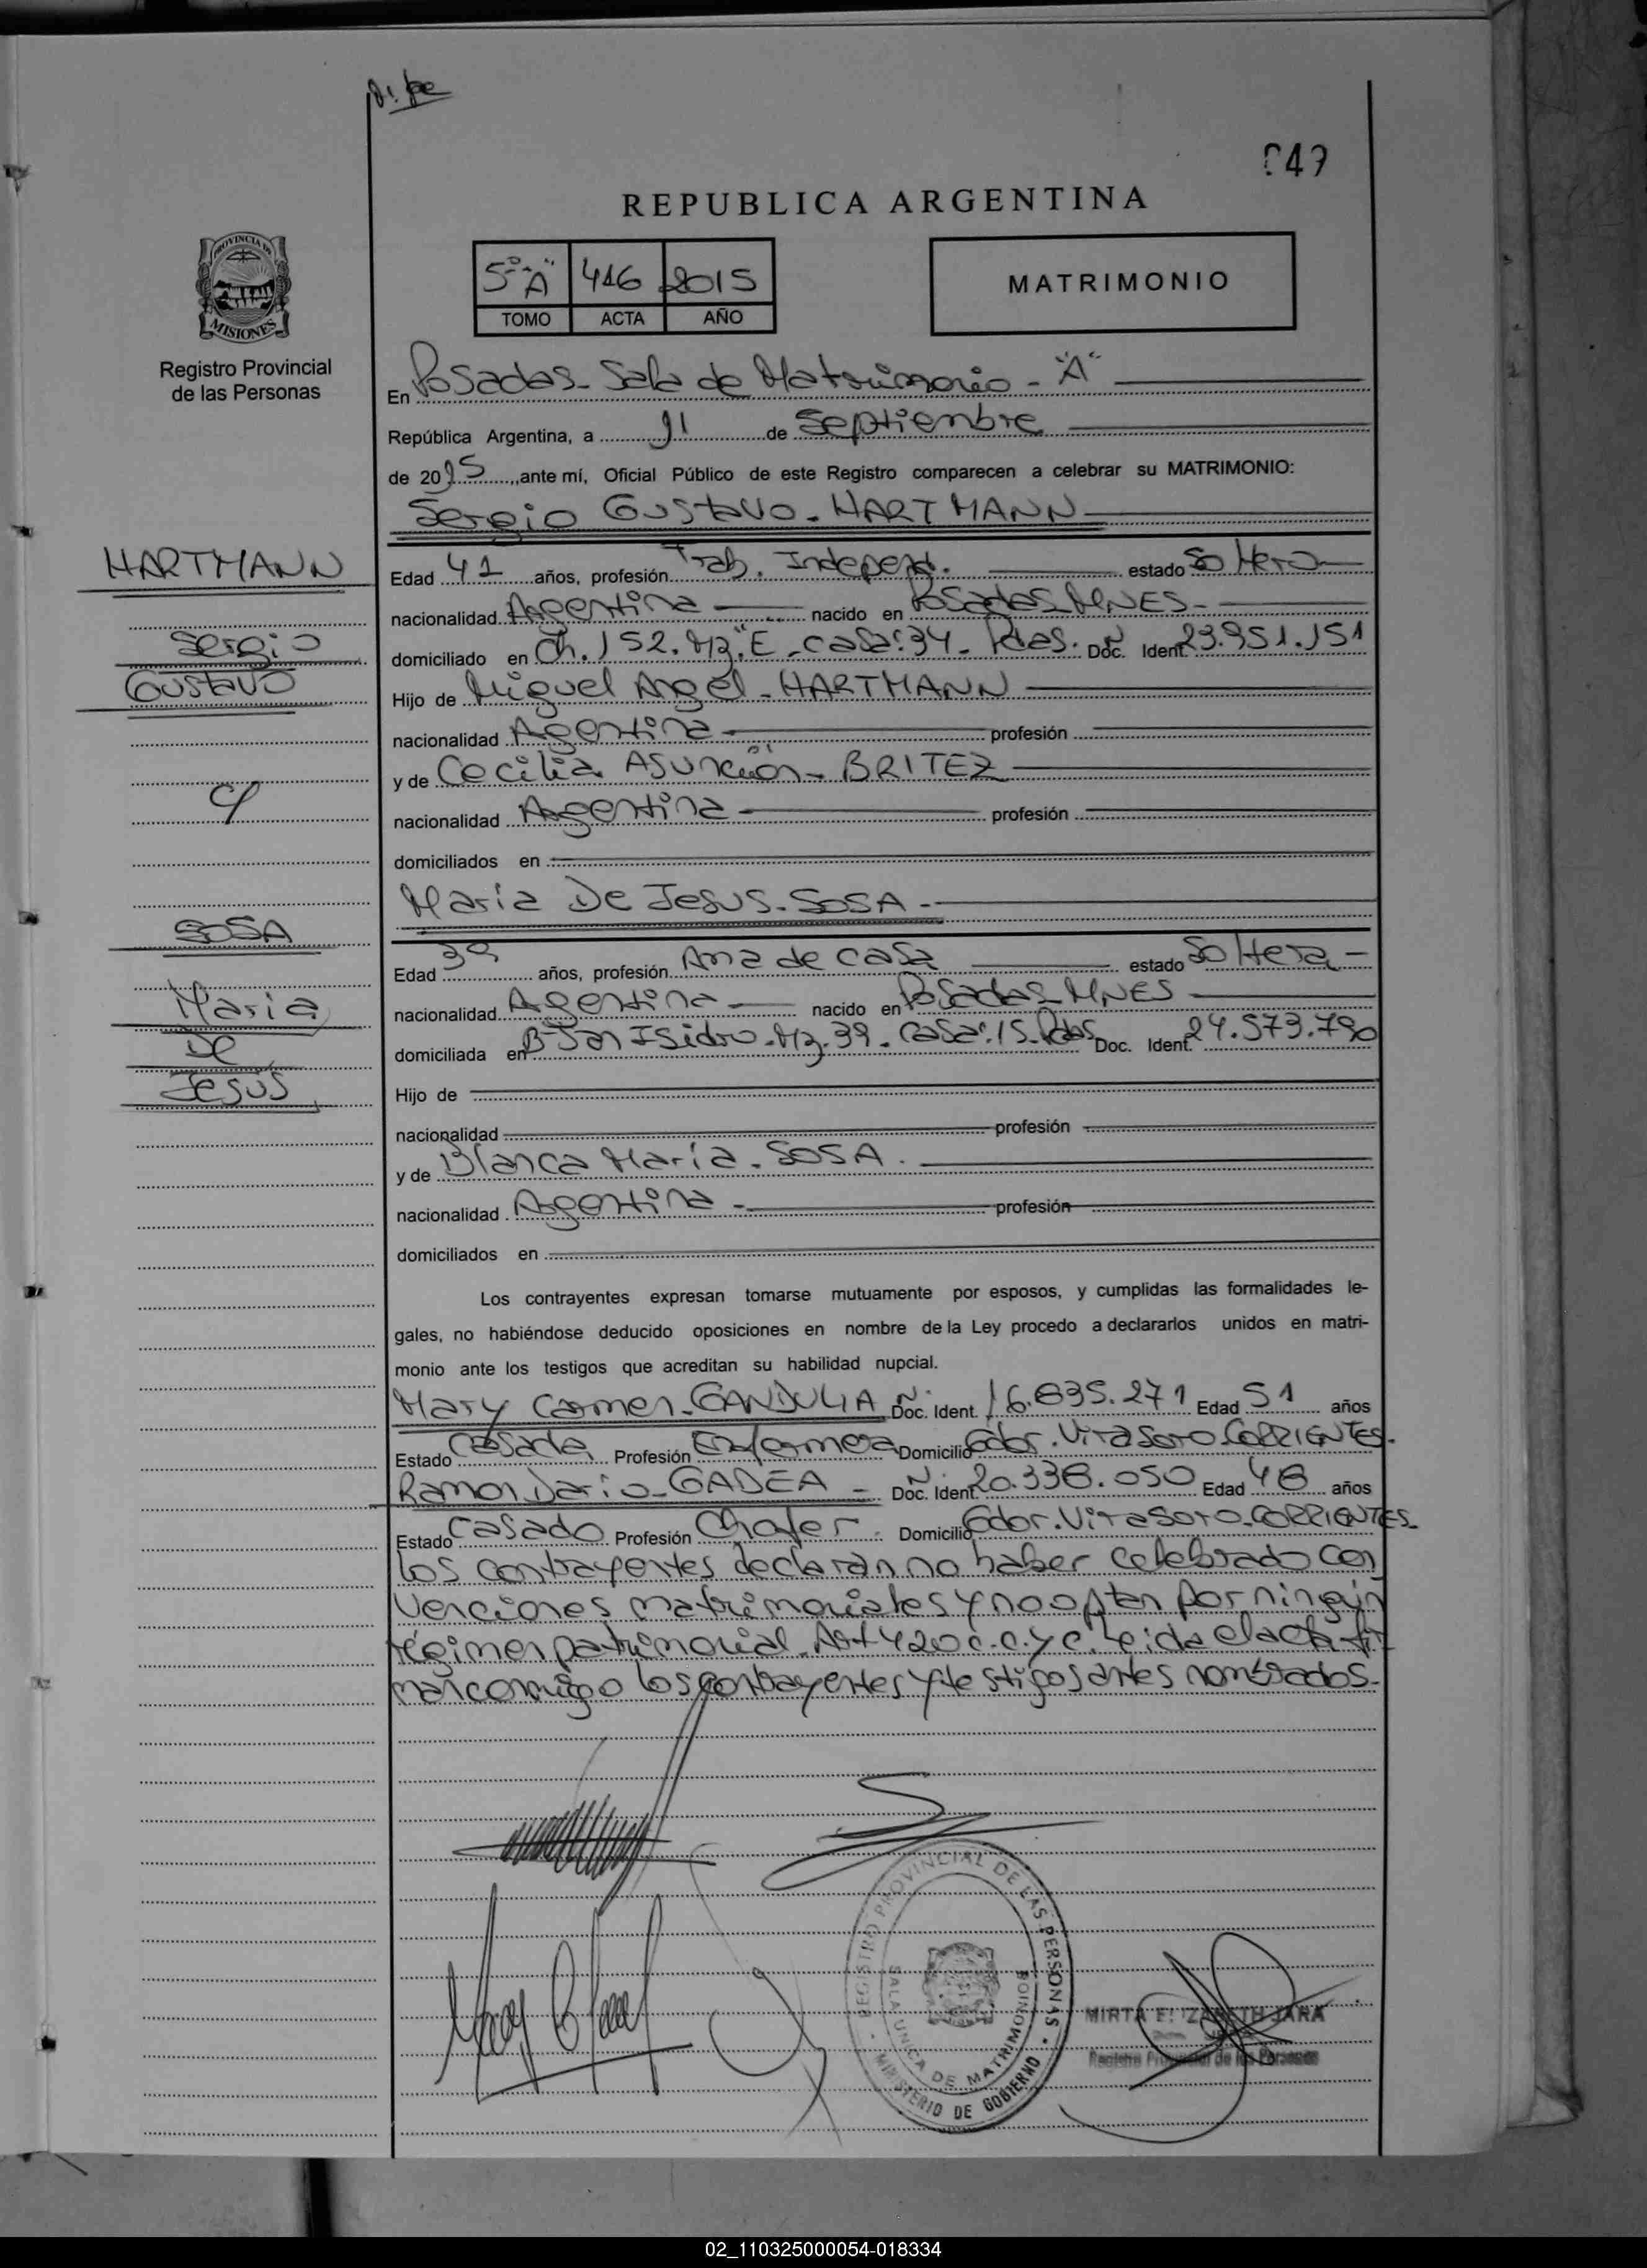 049
REPUBLICA ARGENTINA
5º "A" 416 2015
TOMO ACTA AÑO
MATRIMONIO
PROVINCIA DE
MISIONES
Registro Provincial
de las Personas
En Posadas - Sala de Matrimonio - "A"
República Argentina, a 11 de Septiembre
de 2015, ante mí, Oficial Público de este Registro comparecen a celebrar su MATRIMONIO:
Sergio Gustavo - HARTMANN
HARTMANN
Sergio
Gustavo
c/
SOSA
Maria
De
Jesús
Edad 41 años, profesión Trab. Independ. estado Soltero
nacionalidad Argentina nacido en Posadas - MNES -
domiciliado en Ch. 152. Mz. "E - casa: 34 - Pdas. Doc. Ident. Nº 23.951.151
Hijo de Miguel Angel - HARTMANN
nacionalidad Argentina - profesión
y de Cecilia Asunción - BRITEZ
nacionalidad Argentina - profesión
domiciliados en
Maria De Jesus - SOSA -
Edad 39 años, profesión Ama de casa estado Soltera -
nacionalidad Argentina - nacido en Posadas - MNES
domiciliada en Bº San Isidro - Mz. 39 - casa: 15 - Pdas Doc. Ident. 24.573.790
Hijo de
nacionalidad profesión
y de Blanca María - SOSA.
nacionalidad Argentina - profesión
domiciliados en
Los contrayentes expresan tomarse mutuamente por esposos, y cumplidas las formalidades le-
gales, no habiéndose deducido oposiciones en nombre de la Ley procedo a declararlos unidos en matri-
monio ante los testigos que acreditan su habilidad nupcial.
Mary Carmen - GANDULIA Nº Doc. Ident. 16.835.271 Edad 51 años
Estado Casada Profesión Enfermera Domicilio Gdor. Virasoro - CORRIENTES.
Ramon Dario - GADEA - Nº Doc. Ident. 20.338.050 Edad 48 años
Estado Casado Profesión Chofer. Domicilio Gdor. Virasoro - CORRIENTES
Los contrayentes declaran no haber celebrado con
venciones matrimoniales y no optan por ningún
régimen patrimonial. Art 420 c.c.y c. Leída el acta fir
man conmigo los contrayentes y testigos antes nombrados.
REGISTRO PROVINCIAL DE LAS PERSONAS
SALA UNICA DE MATRIMONIOS
MINISTERIO DE GOBIERNO
MIRTA ELIZABETH JARA
Registro Provincial de las Personas
02_110325000054-018334